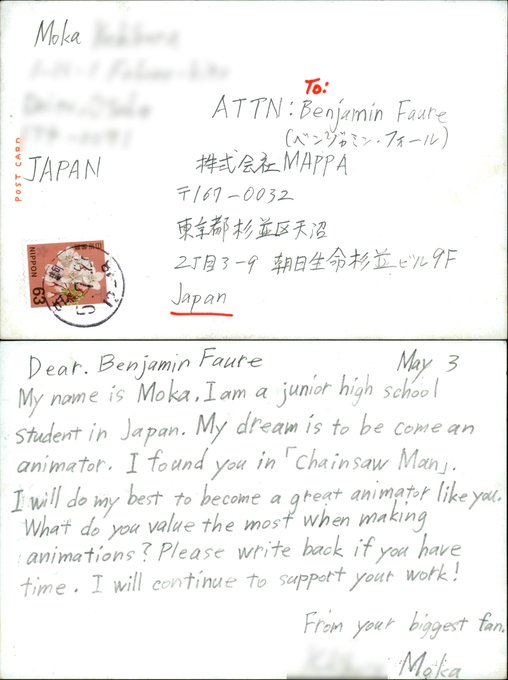 Moka
JAPAN
POST CARD
To:
ATTN: Benjamin Faure
(ベンジャミン・フォール)
株式会社MAPPA
〒167-0032
東京都杉並区天沼
2丁目3-9 朝日生命杉並ビル9F
Japan
NIPPON
63
Dear. Benjamin Faure May 3
My name is Moka. I am a junior high school
student in Japan. My dream is to be come an
animator. I found you in「Chainsaw Man」.
I will do my best to become a great animator like you.
What do you value the most when making
animations? Please write back if you have
time. I will continue to support your work!
From your biggest fan.
Moka